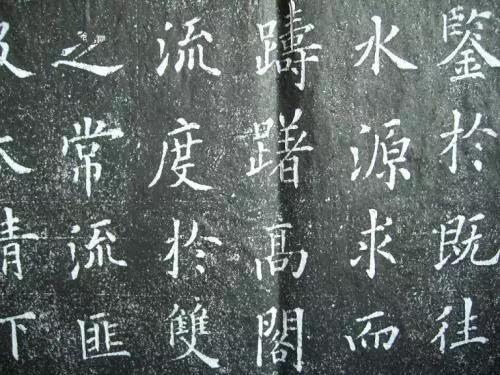 鑒於既往
水源求而
躊躇高閣
流度於雙
之常流匪
及太清下